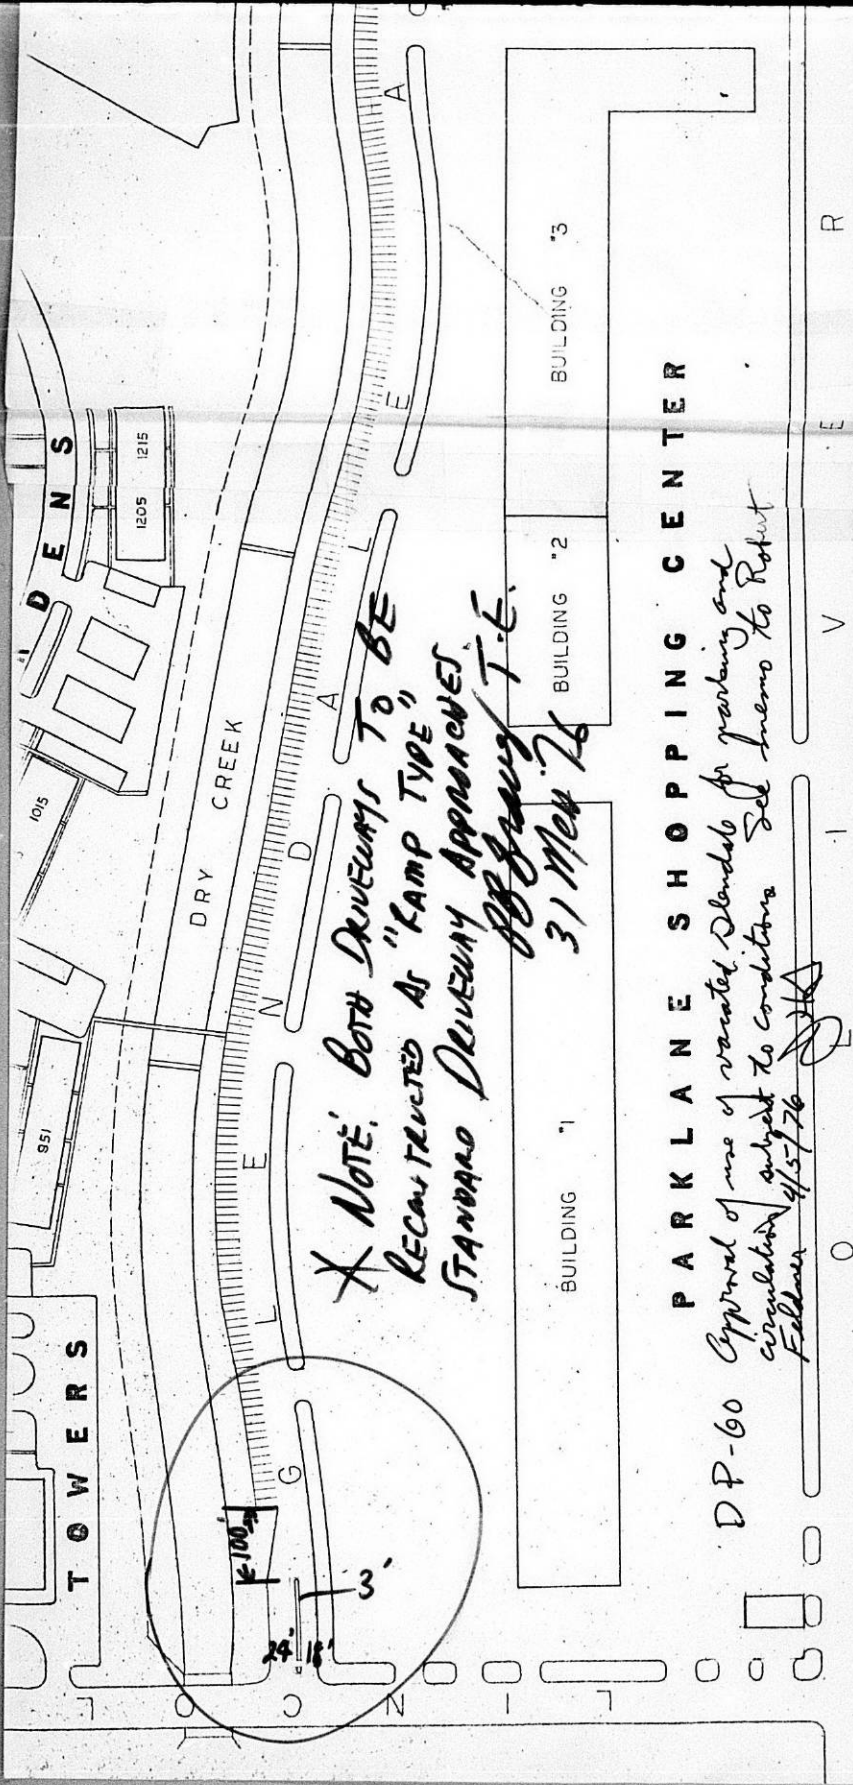 DENS
1215
1205
1015
951
TOWERS
DRY CREEK
GLENDALE A
* NOTE: BOTH DRIVEWAYS TO BE
RECONSTRUCTED AS "RAMP TYPE"
STANDARD DRIVEWAY APPROACHES
T.E.
31 MCH 76
←100'→
3'
24'
18'
BUILDING "1
BUILDING "2
BUILDING "3
PARKLANE SHOPPING CENTER
DP-60 Approval of use of vacated Glendale for parking and
circulation subject to conditions See memo to Robert
Feldmer 4/5/76
LINCOL
OLIVER